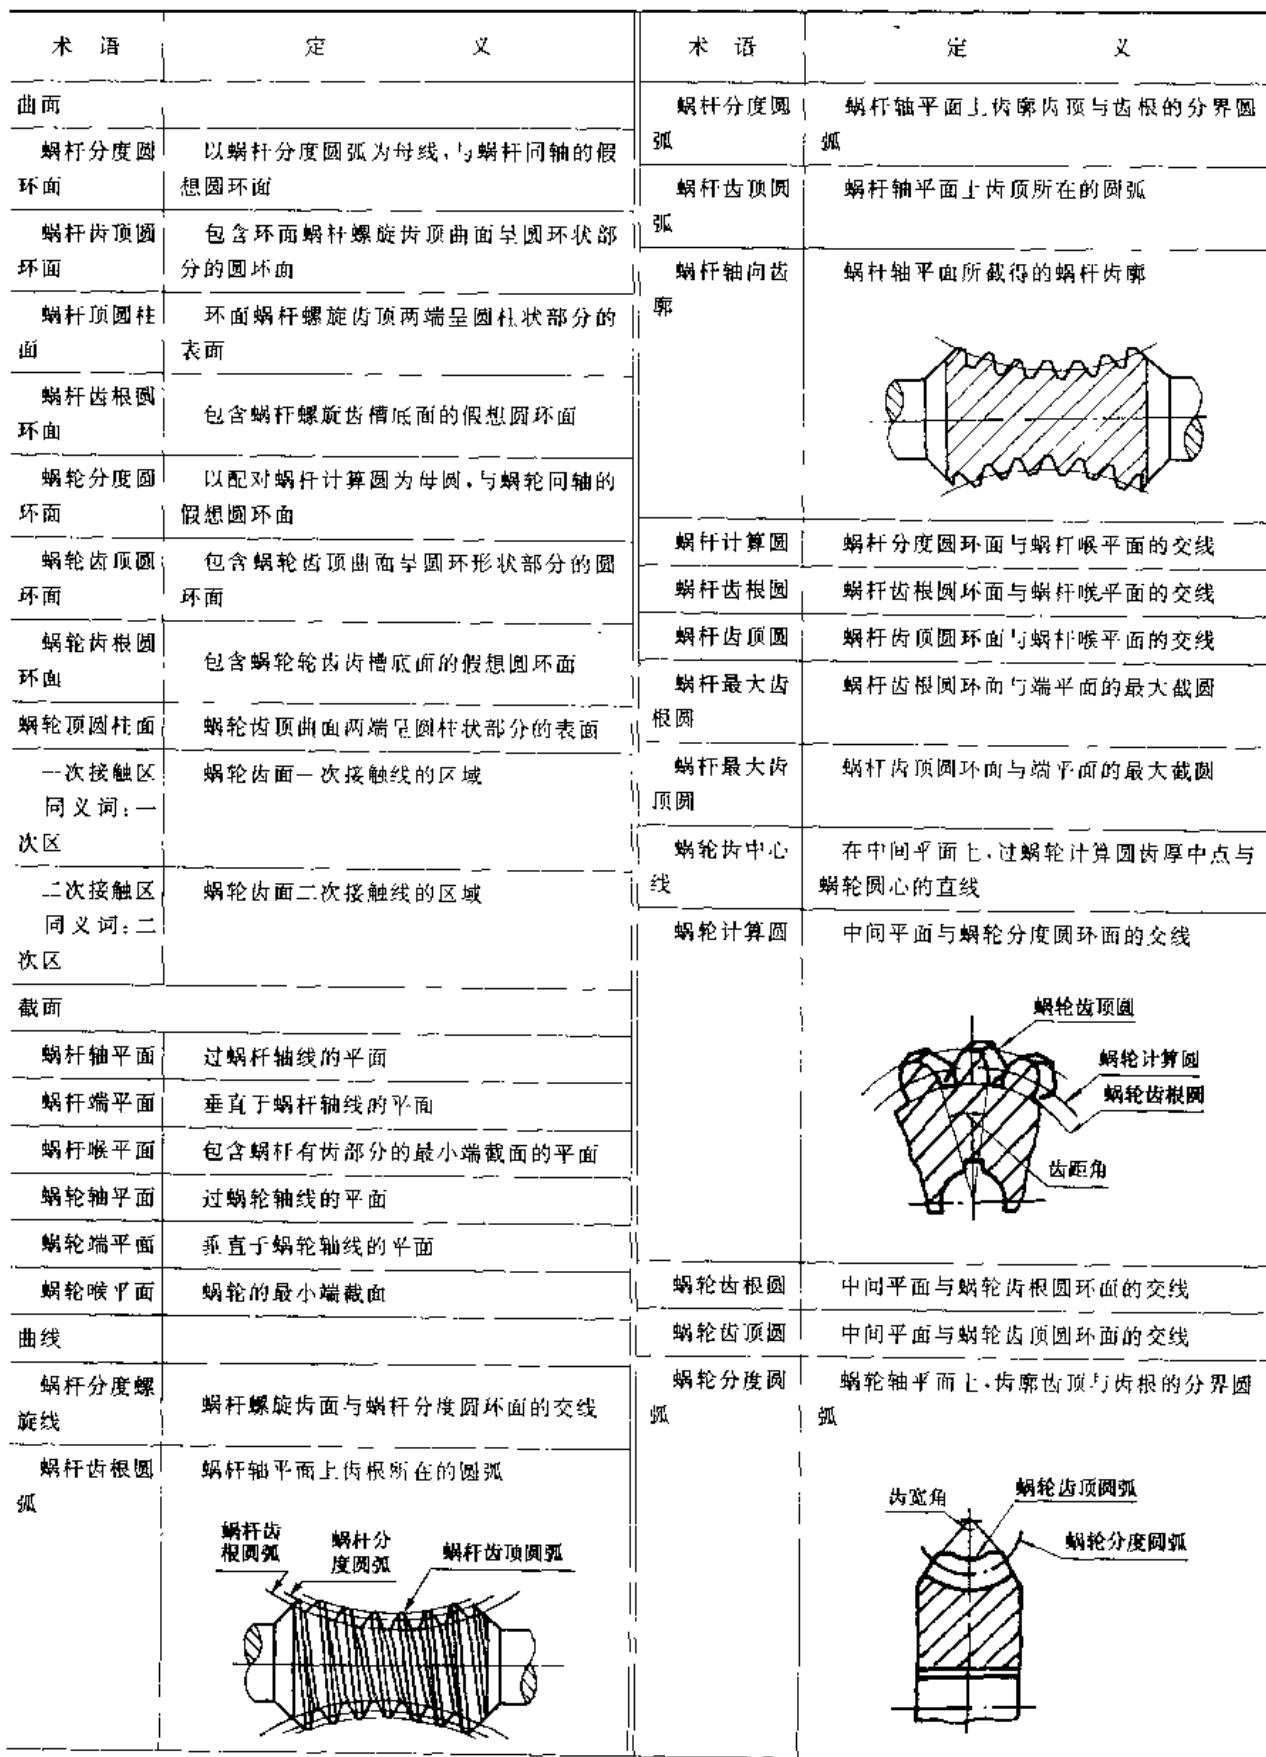 术语 定义
曲面
蜗杆分度圆 以蜗杆分度圆弧为母线,与蜗杆同轴的假
环面 想圆环面
蜗杆齿顶圆 包含环面蜗杆螺旋齿顶曲面呈圆环状部
环面 分的圆环面
蜗杆顶圆柱 环面蜗杆螺旋齿顶两端呈圆柱状部分的
面 表面
蜗杆齿根圆
包含蜗杆螺旋齿槽底面的假想圆环面
环面
蜗轮分度圆 以配对蜗杆计算圆为母圆,与蜗轮同轴的
环面 假想圆环面
蜗轮齿顶圆 包含蜗轮齿顶曲面呈圆环形状部分的圆
环面 环面
蜗轮齿根圆
包含蜗轮轮齿齿槽底面的假想圆环面
环面
蜗轮顶圆柱面 蜗轮齿顶曲面两端呈圆柱状部分的表面
一次接触区 蜗轮齿面一次接触线的区域
同义词:一
次区
二次接触区 蜗轮齿面二次接触线的区域
同义词:二
次区
截面
蜗杆轴平面 过蜗杆轴线的平面
蜗杆端平面 垂直于蜗杆轴线的平面
蜗杆喉平面 包含蜗杆有齿部分的最小端截面的平面
蜗轮轴平面 过蜗轮轴线的平面
蜗轮端平面 垂直于蜗轮轴线的平面
蜗轮喉平面 蜗轮的最小端截面
曲线
蜗杆分度螺
蜗杆螺旋齿面与蜗杆分度圆环面的交线
旋线
蜗杆齿根圆 蜗杆轴平面上齿根所在的圆弧
弧
蜗杆齿
根圆弧
蜗杆分
度圆弧
蜗杆齿顶圆弧
术语 定义
蜗杆分度圆 蜗杆轴平面上齿廓齿顶与齿根的分界圆
弧 弧
蜗杆齿顶圆 蜗杆轴平面上齿顶所在的圆弧
弧
蜗杆轴向齿 蜗杆轴平面所截得的蜗杆齿廓
廓
蜗杆计算圆 蜗杆分度圆环面与蜗杆喉平面的交线
蜗杆齿根圆 蜗杆齿根圆环面与蜗杆喉平面的交线
蜗杆齿顶圆 蜗杆齿顶圆环面与蜗杆喉平面的交线
蜗杆最大齿 蜗杆齿根圆环面与端平面的最大截圆
根圆
蜗杆最大齿 蜗杆齿顶圆环面与端平面的最大截圆
顶圆
蜗轮齿中心 在中间平面上,过蜗轮计算圆齿厚中点与
线 蜗轮圆心的直线
蜗轮计算圆 中间平面与蜗轮分度圆环面的交线
蜗轮齿顶圆
蜗轮计算圆
蜗轮齿根圆
齿距角
蜗轮齿根圆 中间平面与蜗轮齿根圆环面的交线
蜗轮齿顶圆 中间平面与蜗轮齿顶圆环面的交线
蜗轮分度圆 蜗轮轴平面上,齿廓齿顶与齿根的分界圆
弧 弧
齿宽角
蜗轮齿顶圆弧
蜗轮分度圆弧